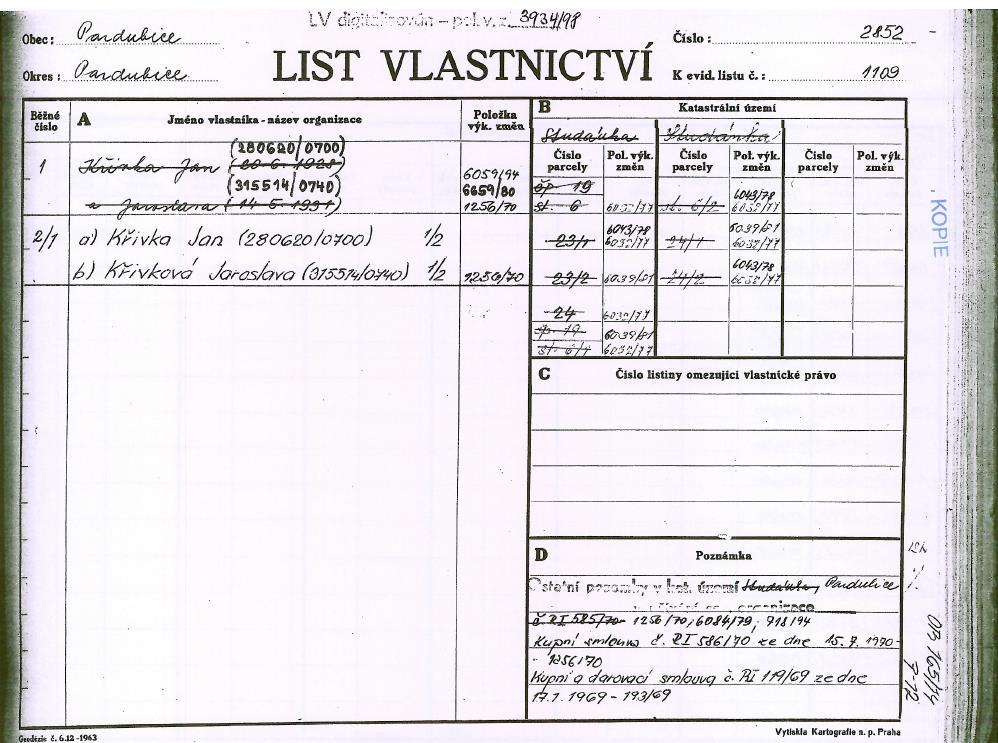 LV digitalizován - pol. v. z. 3934/98
Obec: Pardubice
Číslo: 2852
Okres: Pardubice
LIST VLASTNICTVÍ
K evid. listu č.: 1109
Běžné číslo
A
Jméno vlastníka - název organizace
Položka výk. změn
(280620/0700)
1 Křivka Jan (20.6.1928) 6059/94
(315514/0740) 6659/80
a Jaroslava (14.5.1931) 1256/70
2/1 a) Křivka Jan (280620/0700) 1/2
b) Křivková Jaroslava (315514/0740) 1/2 1256/70
B
Katastrální území
Studánka Studánka
Číslo parcely Pol. výk. změn Číslo parcely Pol. výk. změn Číslo parcely Pol. výk. změn
čp. 19 6043/78
st. 6 6032/77 st. 6/2 6032/77
6043/78 6039/81
23/1 6032/77 24/1 6032/77
6043/78
23/2 6039/81 24/2 6032/77
24 6032/77
čp. 19 6039/81
st. 6/1 6032/77
C
Číslo listiny omezující vlastnické právo
D
Poznámka
Ostatní pozemky v kat. území Studánka, Pardubice
organizace
č RI 585/70 - 1256/70, 6084/79, 918/94
Kupní smlouva č. RI 586/70 ze dne 15.7.1970 -
- 1256/70
Kupní a darovací smlouva č. RI 119/69 ze dne
17.1.1969 - 193/69
KOPIE
7-12
Geodézie č. 6.12 - 1963
Vytiskla Kartografie n. p. Praha